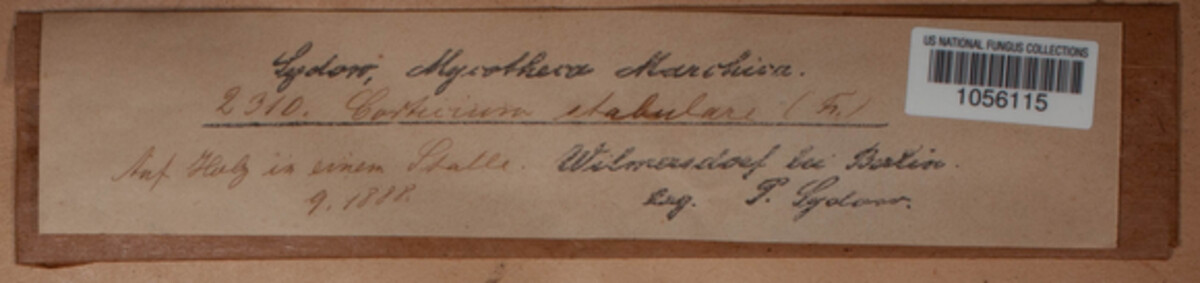 Sydow, Mycotheca Marchica.
2310. Corticium stabulare (Fr.)
Auf Holz in einem Stalle. Wilmersdorf bei Berlin.
9. 1888. Leg. P. Sydow.
US NATIONAL FUNGUS COLLECTIONS
1056115